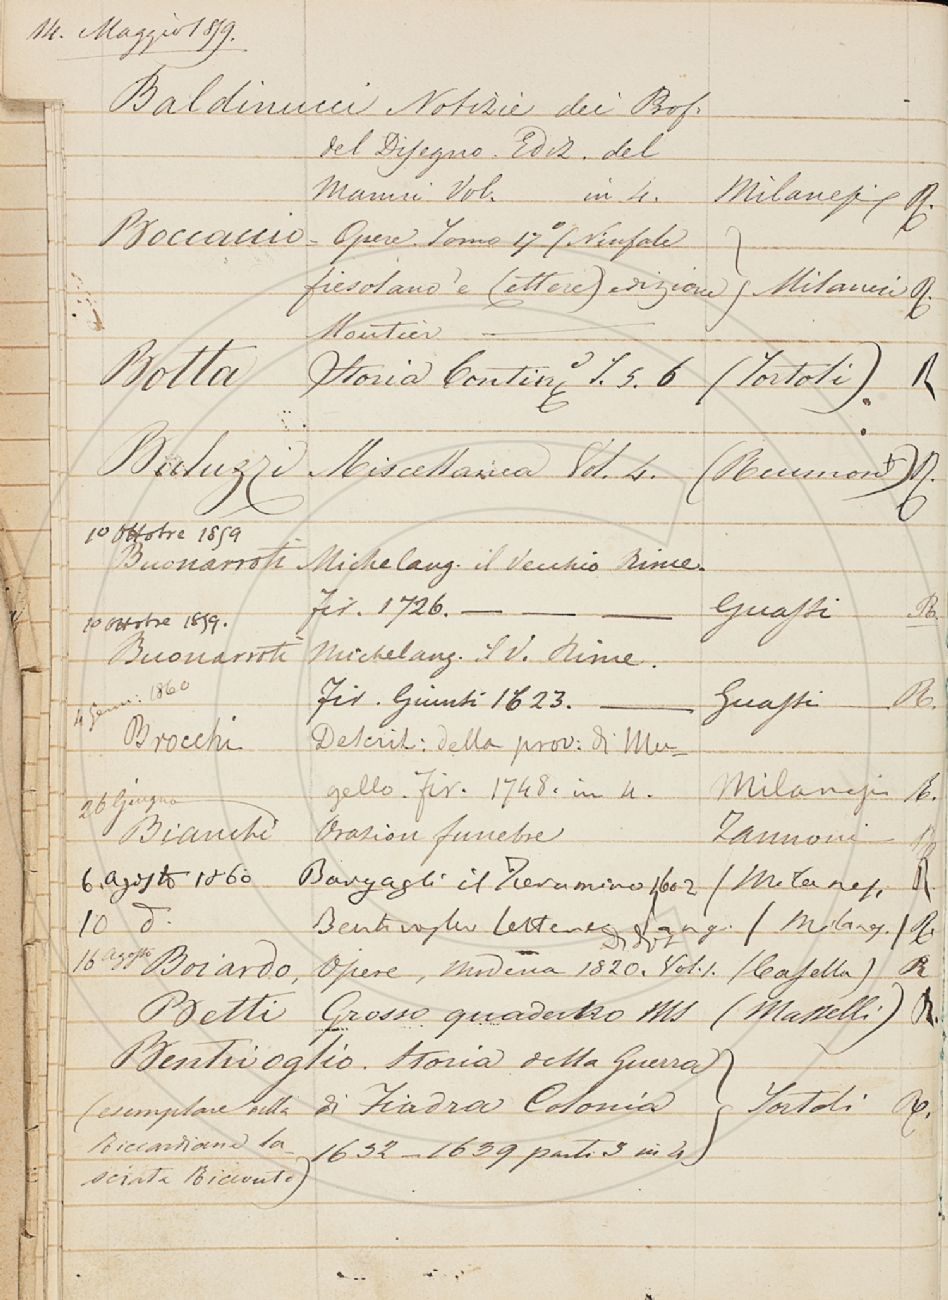 14. Maggio 1859.
Baldinucci Notizie dei Prof.
del Disegno. Ediz. del
Manni Vol. in 4. Milanesi R.
Boccaccio - Opere. Tomo 17º (Ninfale
fiesolano e lettere) edizione } Milanesi R.
Moutier
Botta Storia Contin. T. 5. 6 (Tortoli) R
Baluzzi Miscellanea Vol. 4. (Reumont) R.
10 Ottobre 1859
Buonarroti Michelang. il Vecchio Rime.
Fir. 1726. — — — Guasti R.
10 Ottobre 1859.
Buonarroti Michelang. il V. Rime.
Fir. Giunti 1623. — Guasti R.
4 Genn: 1860
Brocchi Descriz: della prov: di Mu=
gello. Fir. 1748. in 4. Milanesi R.
26 Giugno
Bianchi Orazion funebre Zannoni R
6. Agosto 1860 Bargagli il Turamino 1602 / Milanes. R.
10 d: Bentivoglio Lettere / Milanes. / R.
16 Agosto Boiardo, Opere, Modena 1820. Vol. 1. (Casella) R
Betti Grosso quaderno MS (Masselli) R.
Bentivoglio. Storia della Guerra
(esemplare della di Fiadra Colonia } Tortoli R.
Riccardiana la- 1632 - 1639 parti 3 in 4
sciata Ricevuta)